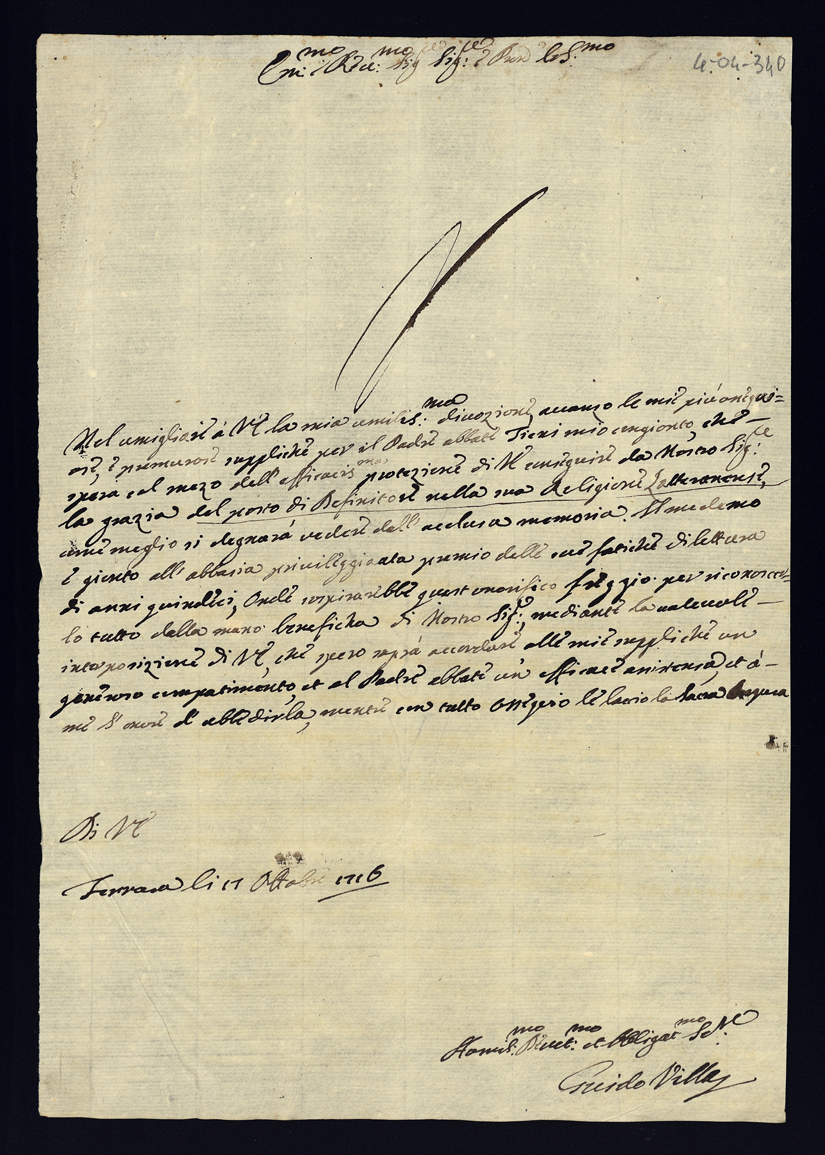 Em:mo e Rev:mo Sig:re Sig:re e Pron Col:mo
4-04-340
Nel umigliare à VE la mia umilis:ma divozione, avanzo le mie più ossequi=
ose, e premurose suppliche per il Padre abbate Fieni mio congionto, che
spera col mezo dell' efficacis:ma protezione di VE conseguire da Nostro Sig:re
la grazia del posto di Definitore nella sua Religione Lateranense,
come meglio si degnarà vedere dall' acclusa memoria. Il medemo
è gionto all' abbazia privileggiata premio delle sue fatiche di lettura
di anni quindeci, Onde sospirarebbe quest' onorifico freggio per riconoscer=
lo tutto dalla mano benefica di Nostro Sig:re, mediante la valevole
interposizione di VE, che spero saprà accordare alle mie suppliche un
generoso compatimento, et al Padre abbate un' efficace assistenza, et à
me l' onore d' ubbidirla, mentre con tutto Ossequio le bacio la Sacra Porpora
Di VE
Ferrara li 17 Ottobre 1716
Humil:mo Devot:mo et Obligat:mo Se:re
Guido Villa